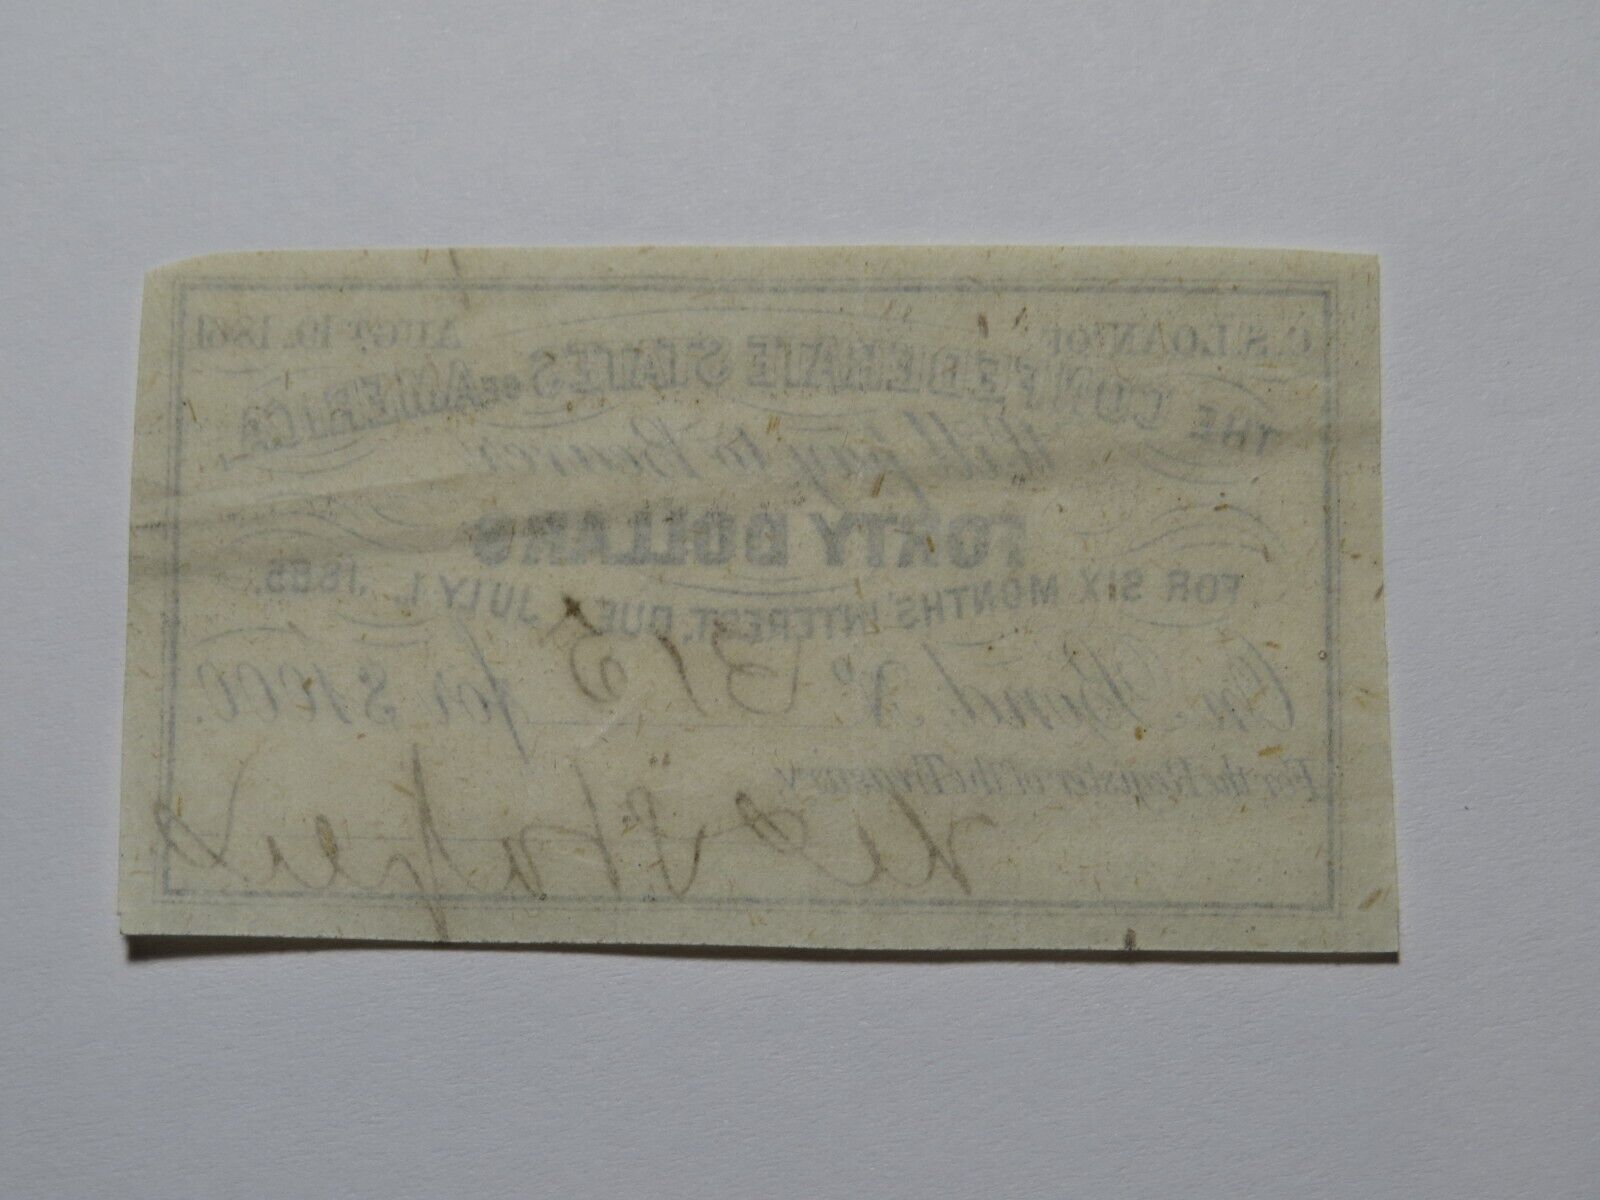 C.S. LOAN OF AUGT 19, 1861
THE CONFEDERATE STATES OF AMERICA,
Will pay to Bearer
FORTY DOLLARS
FOR SIX MONTHS' INTEREST, DUE JULY 1, 1865.
On Bond, No 312 for $1000.
For the Register of the Treasury,